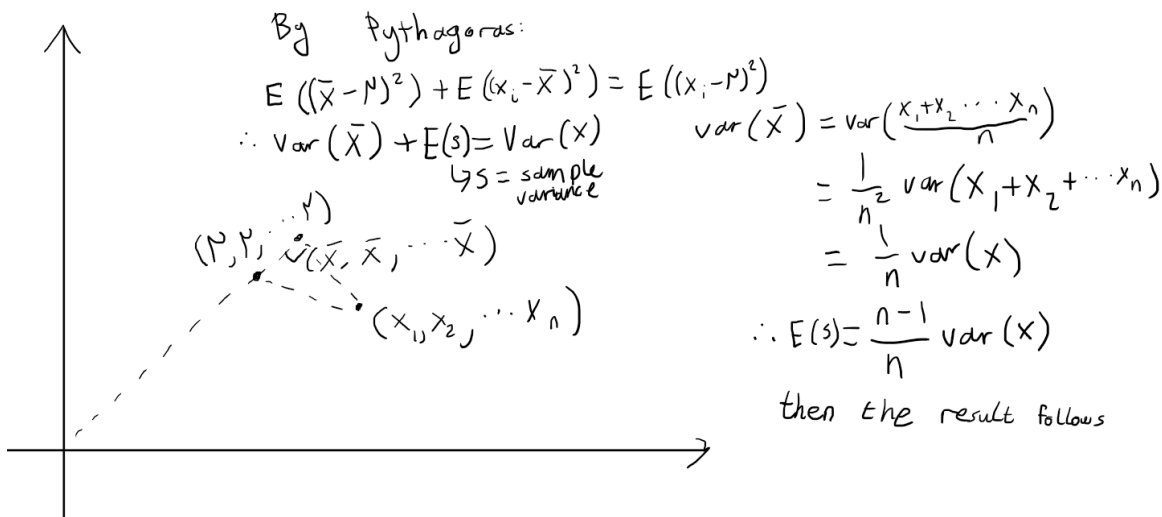 By Pythagoras:
E((x̄-μ)²) + E((xᵢ-x̄)²) = E((xᵢ-μ)²)
∴ Var(x̄) + E(s) = Var(x)
↳ s = sample
variance
(μ, μ, ... μ)
(x̄, x̄, ... x̄)
(x₁, x₂, ... xₙ)
var(x̄) = var((x₁+x₂ ... xₙ)/n)
= 1/n² var(x₁+x₂+...xₙ)
= 1/n var(x)
∴ E(s) = (n-1)/n var(x)
then the result follows